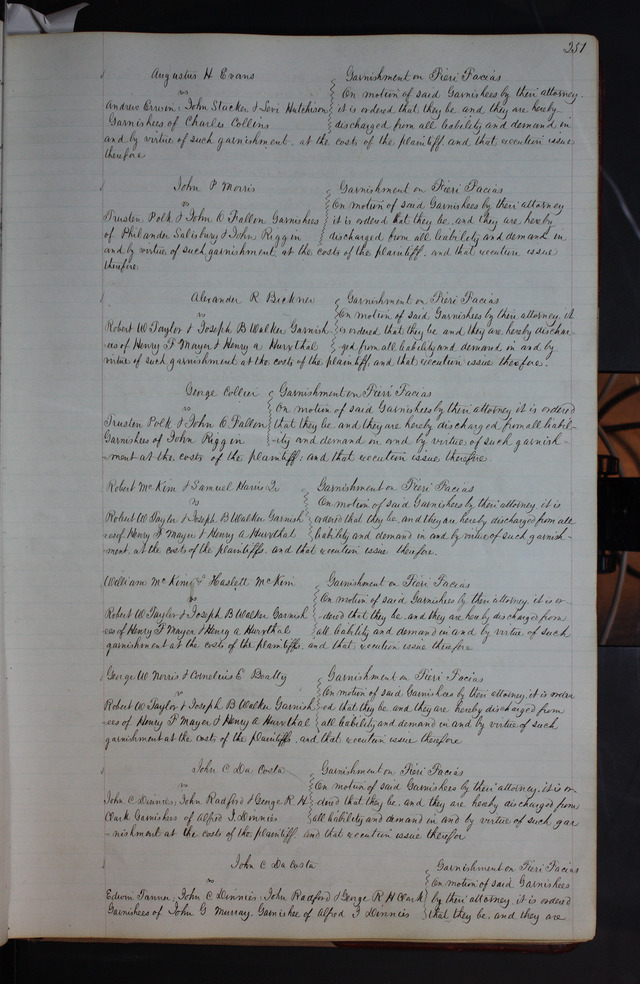 251
Augustus H Evans } Garnishment on Fieri Facias
vs } On motion of said Garnishees by their attorney.
Andrew Erwin, John Stacker & Levi Hutchison } it is ordered that they be and they are hereby
Garnishees of Charles Collins } discharged from all liability and demand in
and by virtue of such garnishment. at the costs of the plaintiff. and that execution issue
therefore
John F Morris } Garnishment on Fieri Facias
vs } On motion of said Garnishees by their attorney
Trusten Polk & John O Fallon Garnishees } it is ordered that they be and they are hereby
of Philander Salisbury & John Riggin } discharged from all liability and demand in
and by virtue of such garnishment at the costs of the plaintiff. and that execution issue
therefore
Alexander R Bickner } Garnishment on Fieri Facias
vs } On motion of said Garnishees by their attorney, it
Robert W Taylor & Joseph B Walker Garnish } is ordered that they be and they are hereby dischar-
ees of Henry F Mayer & Henry A Hurvthal } ged from all liability and demand in and by
virtue of such garnishment at the costs of the plaintiff, and that execution issue therefore.
George Collier } Garnishment on Fieri Facias
vs } On motion of said Garnishees by their attorney it is ordered
Trusten Polk & John O. Fallon } that they be and they are hereby discharged from all liabil-
Garnishees of John Riggin } -ity and demand in and by virtue of such garnish-
-ment at the costs of the plaintiff: and that execution issue therefore
Robert McKim & Samuel Harris Jr } Garnishment on Fieri Facias
vs } On motion of said Garnishees by their attorney, it is
Robert W Taylor & Joseph. B Walker Garnish } ordered that they be, and they are hereby discharged from all
ees of Henry F Mayer & Henry A Hurvthal } liability and demand in and by virtue of such garnish-
ment. at the costs of the plaintiffs. and that execution issue therefore.
William McKim & Haslett McKim } Garnishment on Fieri Facias
vs } On motion of said Garnishees by their attorney. it is or-
Robert W Taylor & Joseph B Walker Garnish } -dered that they be. and they are hereby discharged from
ees of Henry F Mayer & Henry A Hurvthal } all liability and demand in and by virtue of such
garnishment at the costs of the plaintiffs. and that execution issue therefore
George W Norris & Cornelius E Beatty } Garnishment on Fieri Facias
vs } On motion of said Garnishees by their attorney, it is order
Robert W Taylor & Joseph B Walker Garnish } ed that they be. and they are hereby discharged from
ees of Henry F Mayer & Henry A Hurvthal } all liability and demand in and by virtue of such
garnishment at the costs of the plaintiffs, and that execution issue therefore
John C Da Costa } Garnishment on Fieri Facias
vs } On motion of said Garnishees by their attorney. it is or
John C Dinnies, John Radford & George R H } dered that they be. and they are hereby discharged from
Clark Garnishees of Alfred J Dinnies } all liability and demand in and by virtue of such gar
-nishment at the costs of the plaintiff. and that execution issue therefor
John C Da Costa } Garnishment on Fieri Facias
vs } On motion of said Garnishees
Edwin Tanner, John C Dinnies, John Radford & George R H Clark } by their attorney. it is ordered
Garnishees of John G Murray. Garnishee of Alfred J Dinnies } that they be. and they are